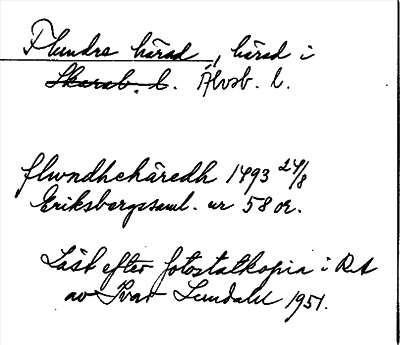 Flundre härad, härad i
Skarab. l. Älvsb. l.
flwndhehäredh 1493 24/8
Eriksbergssaml. nr 58 or.
Läst efter fotostatkopia i RA
av Ivar Lundahl 1951.